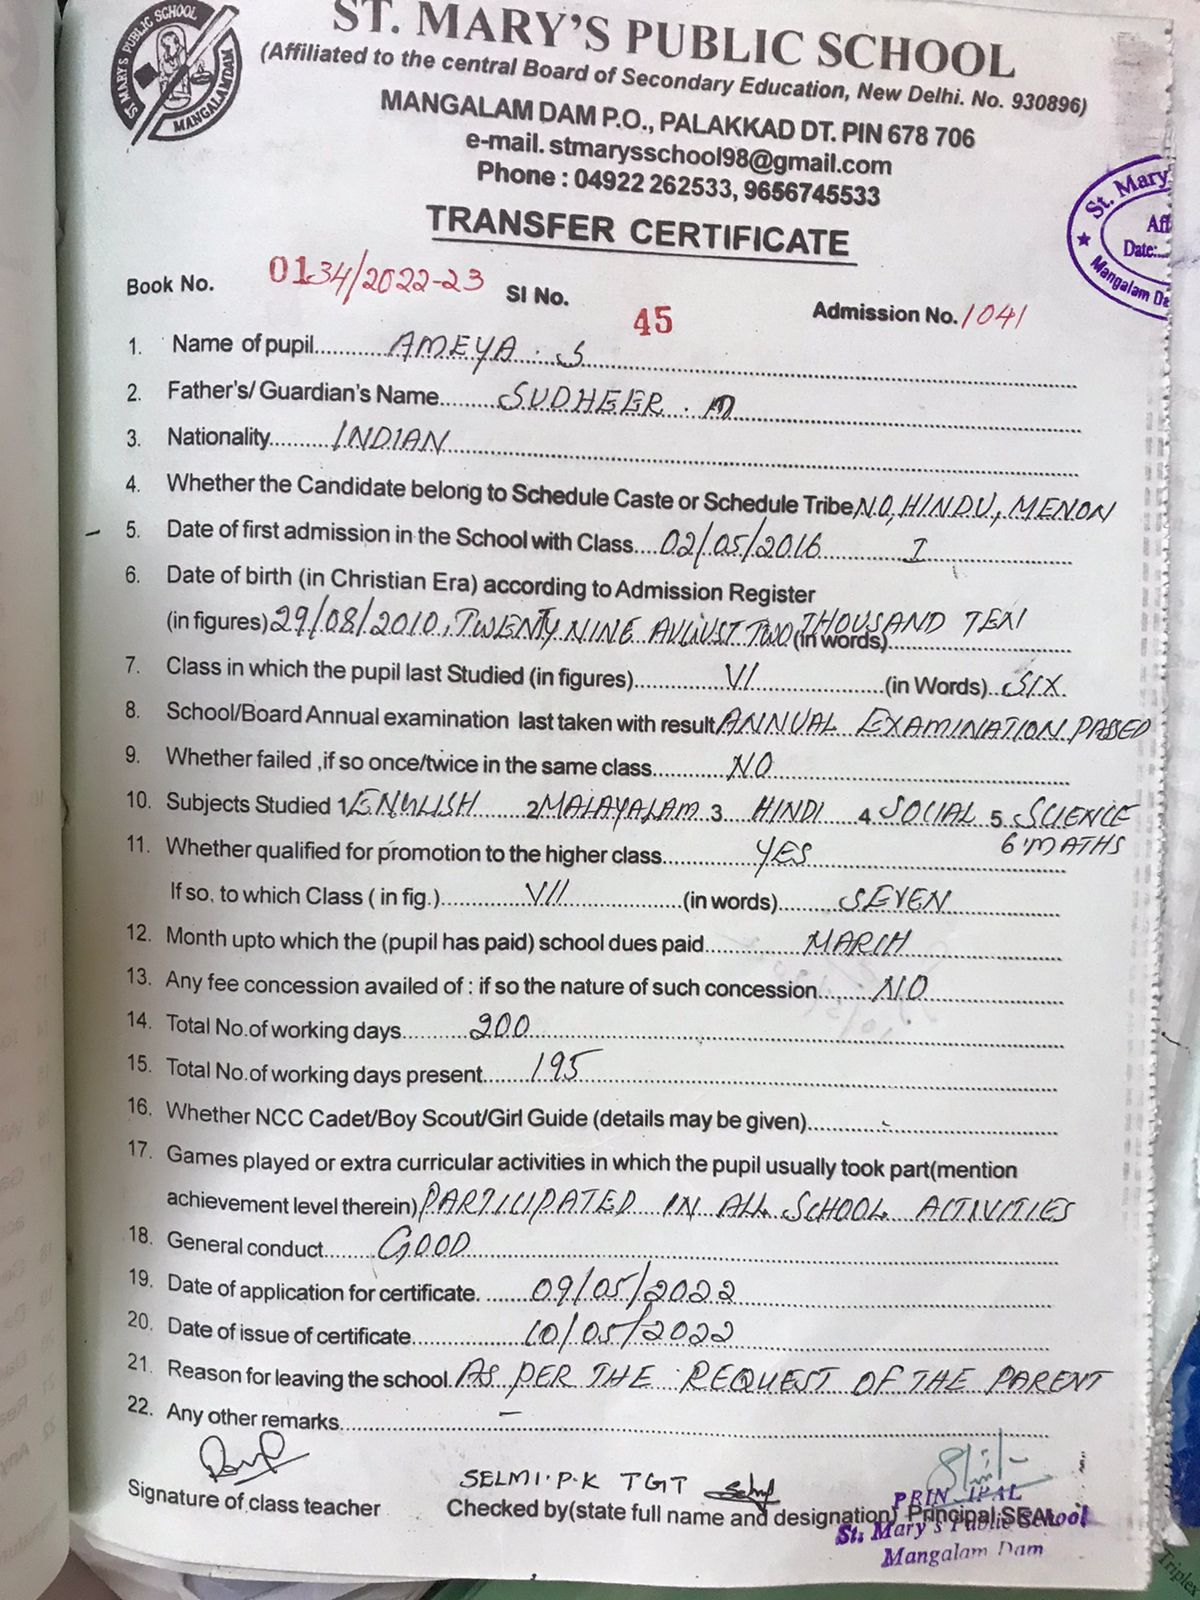 ST. MARY'S PUBLIC SCHOOL
MANGALAMDAM
ST. MARY'S PUBLIC SCHOOL
(Affiliated to the central Board of Secondary Education, New Delhi. No. 930896)
MANGALAM DAM P.O., PALAKKAD DT. PIN 678 706
e-mail. stmarysschool98@gmail.com
Phone : 04922 262533, 9656745533
St. Mary
Aff
Date:....
Mangalam Da
TRANSFER CERTIFICATE
Book No. 0134/2022-23 SI No. 45 Admission No. 1041
1. Name of pupil AMEYA . S
2. Father's/ Guardian's Name SUDHEER . M
3. Nationality INDIAN
4. Whether the Candidate belong to Schedule Caste or Schedule Tribe NO, HINDU, MENON
5. Date of first admission in the School with Class 02/05/2016 I
6. Date of birth (in Christian Era) according to Admission Register
(in figures) 29/08/2010, TWENTY NINE AUGUST TWO THOUSAND TEN (in words)
7. Class in which the pupil last Studied (in figures) VI (in Words) SIX
8. School/Board Annual examination last taken with result ANNUAL EXAMINATION PASSED
9. Whether failed ,if so once/twice in the same class NO
10. Subjects Studied 1 ENGLISH 2 MALAYALAM 3 HINDI 4 SOCIAL 5 SCIENCE
6 MATHS
11. Whether qualified for promotion to the higher class YES
If so, to which Class ( in fig.) VII (in words) SEVEN
12. Month upto which the (pupil has paid) school dues paid MARCH
13. Any fee concession availed of : if so the nature of such concession NO
14. Total No.of working days 200
15. Total No.of working days present 195
16. Whether NCC Cadet/Boy Scout/Girl Guide (details may be given)
17. Games played or extra curricular activities in which the pupil usually took part(mention
achievement level therein) PARTICIPATED IN ALL SCHOOL ACTIVITIES
18. General conduct GOOD
19. Date of application for certificate. 09/05/2022
20. Date of issue of certificate 10/05/2022
21. Reason for leaving the school. AS PER THE REQUEST OF THE PARENT
22. Any other remarks –
SELMI . P . K TGT
Signature of class teacher Checked by(state full name and designation) Principal SEAL
PRINCIPAL
St. Mary's Public School
Mangalam Dam
Triplex